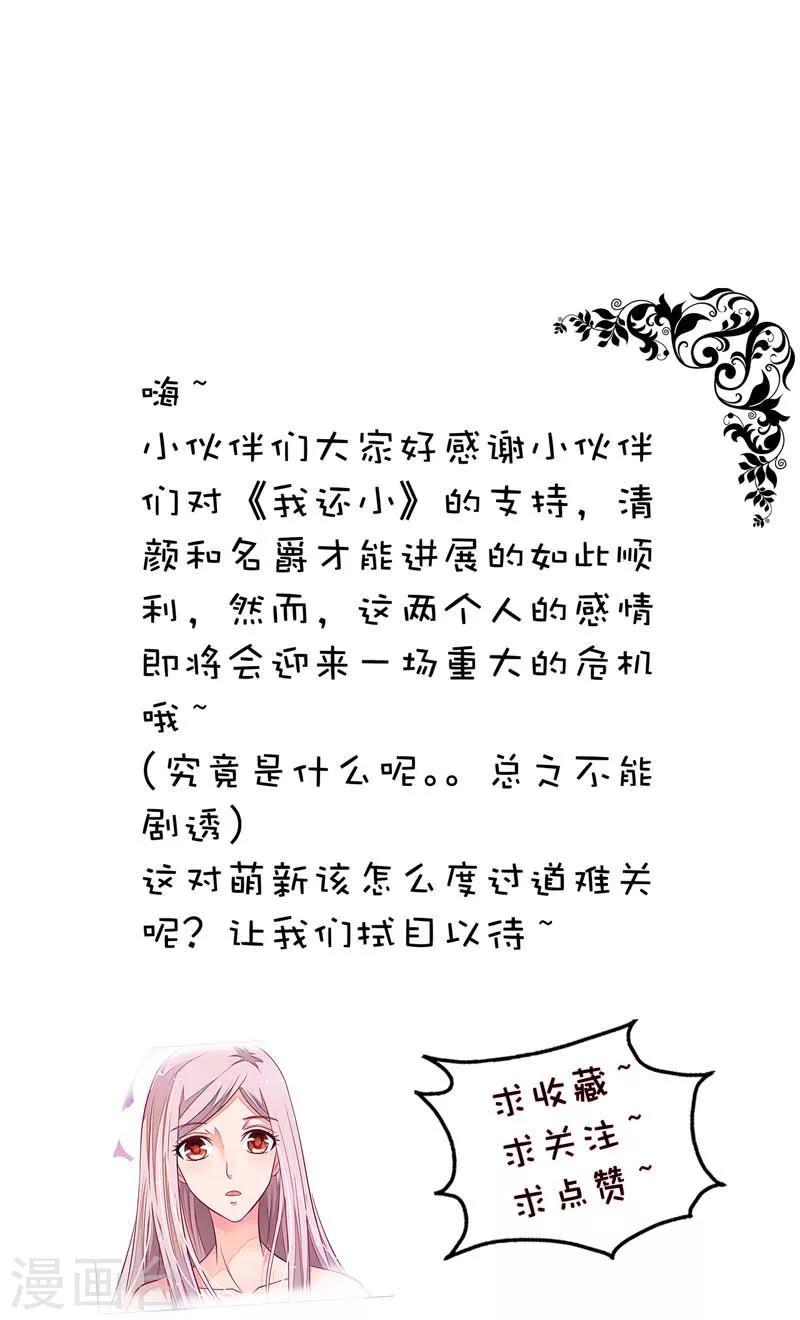 嗨~
小伙伴们大家好感谢小伙伴
们对《我还小》的支持，清
颜和名爵才能进展的如此顺
利，然而，这两个人的感情
即将会迎来一场重大的危机
哦~
(究竟是什么呢。。总之不能
剧透)
这对萌新该怎么度过道难关
呢？让我们拭目以待~
求收藏~
求关注~
求点赞~
漫画台